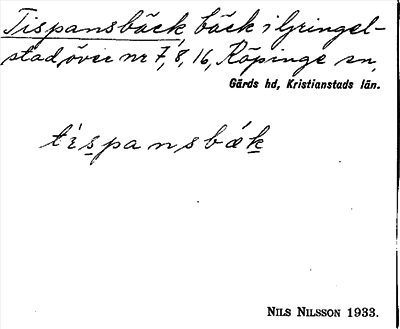 Tispansbäck, bäck i Gringel-
stad, över nr 7, 8, 16, Köpinge sn,
Gärds hd, Kristianstads län.
tispansbǽk
NILS NILSSON 1933.